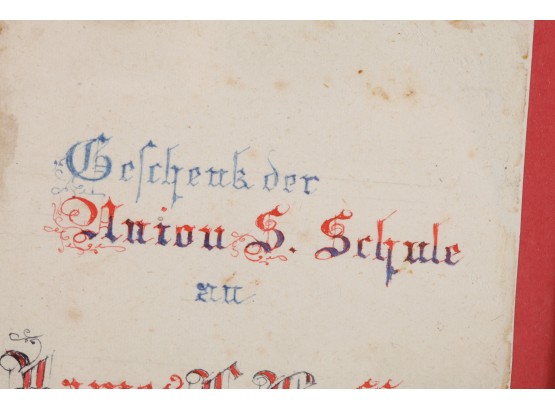 Geschenk der
Union S. Schule
an